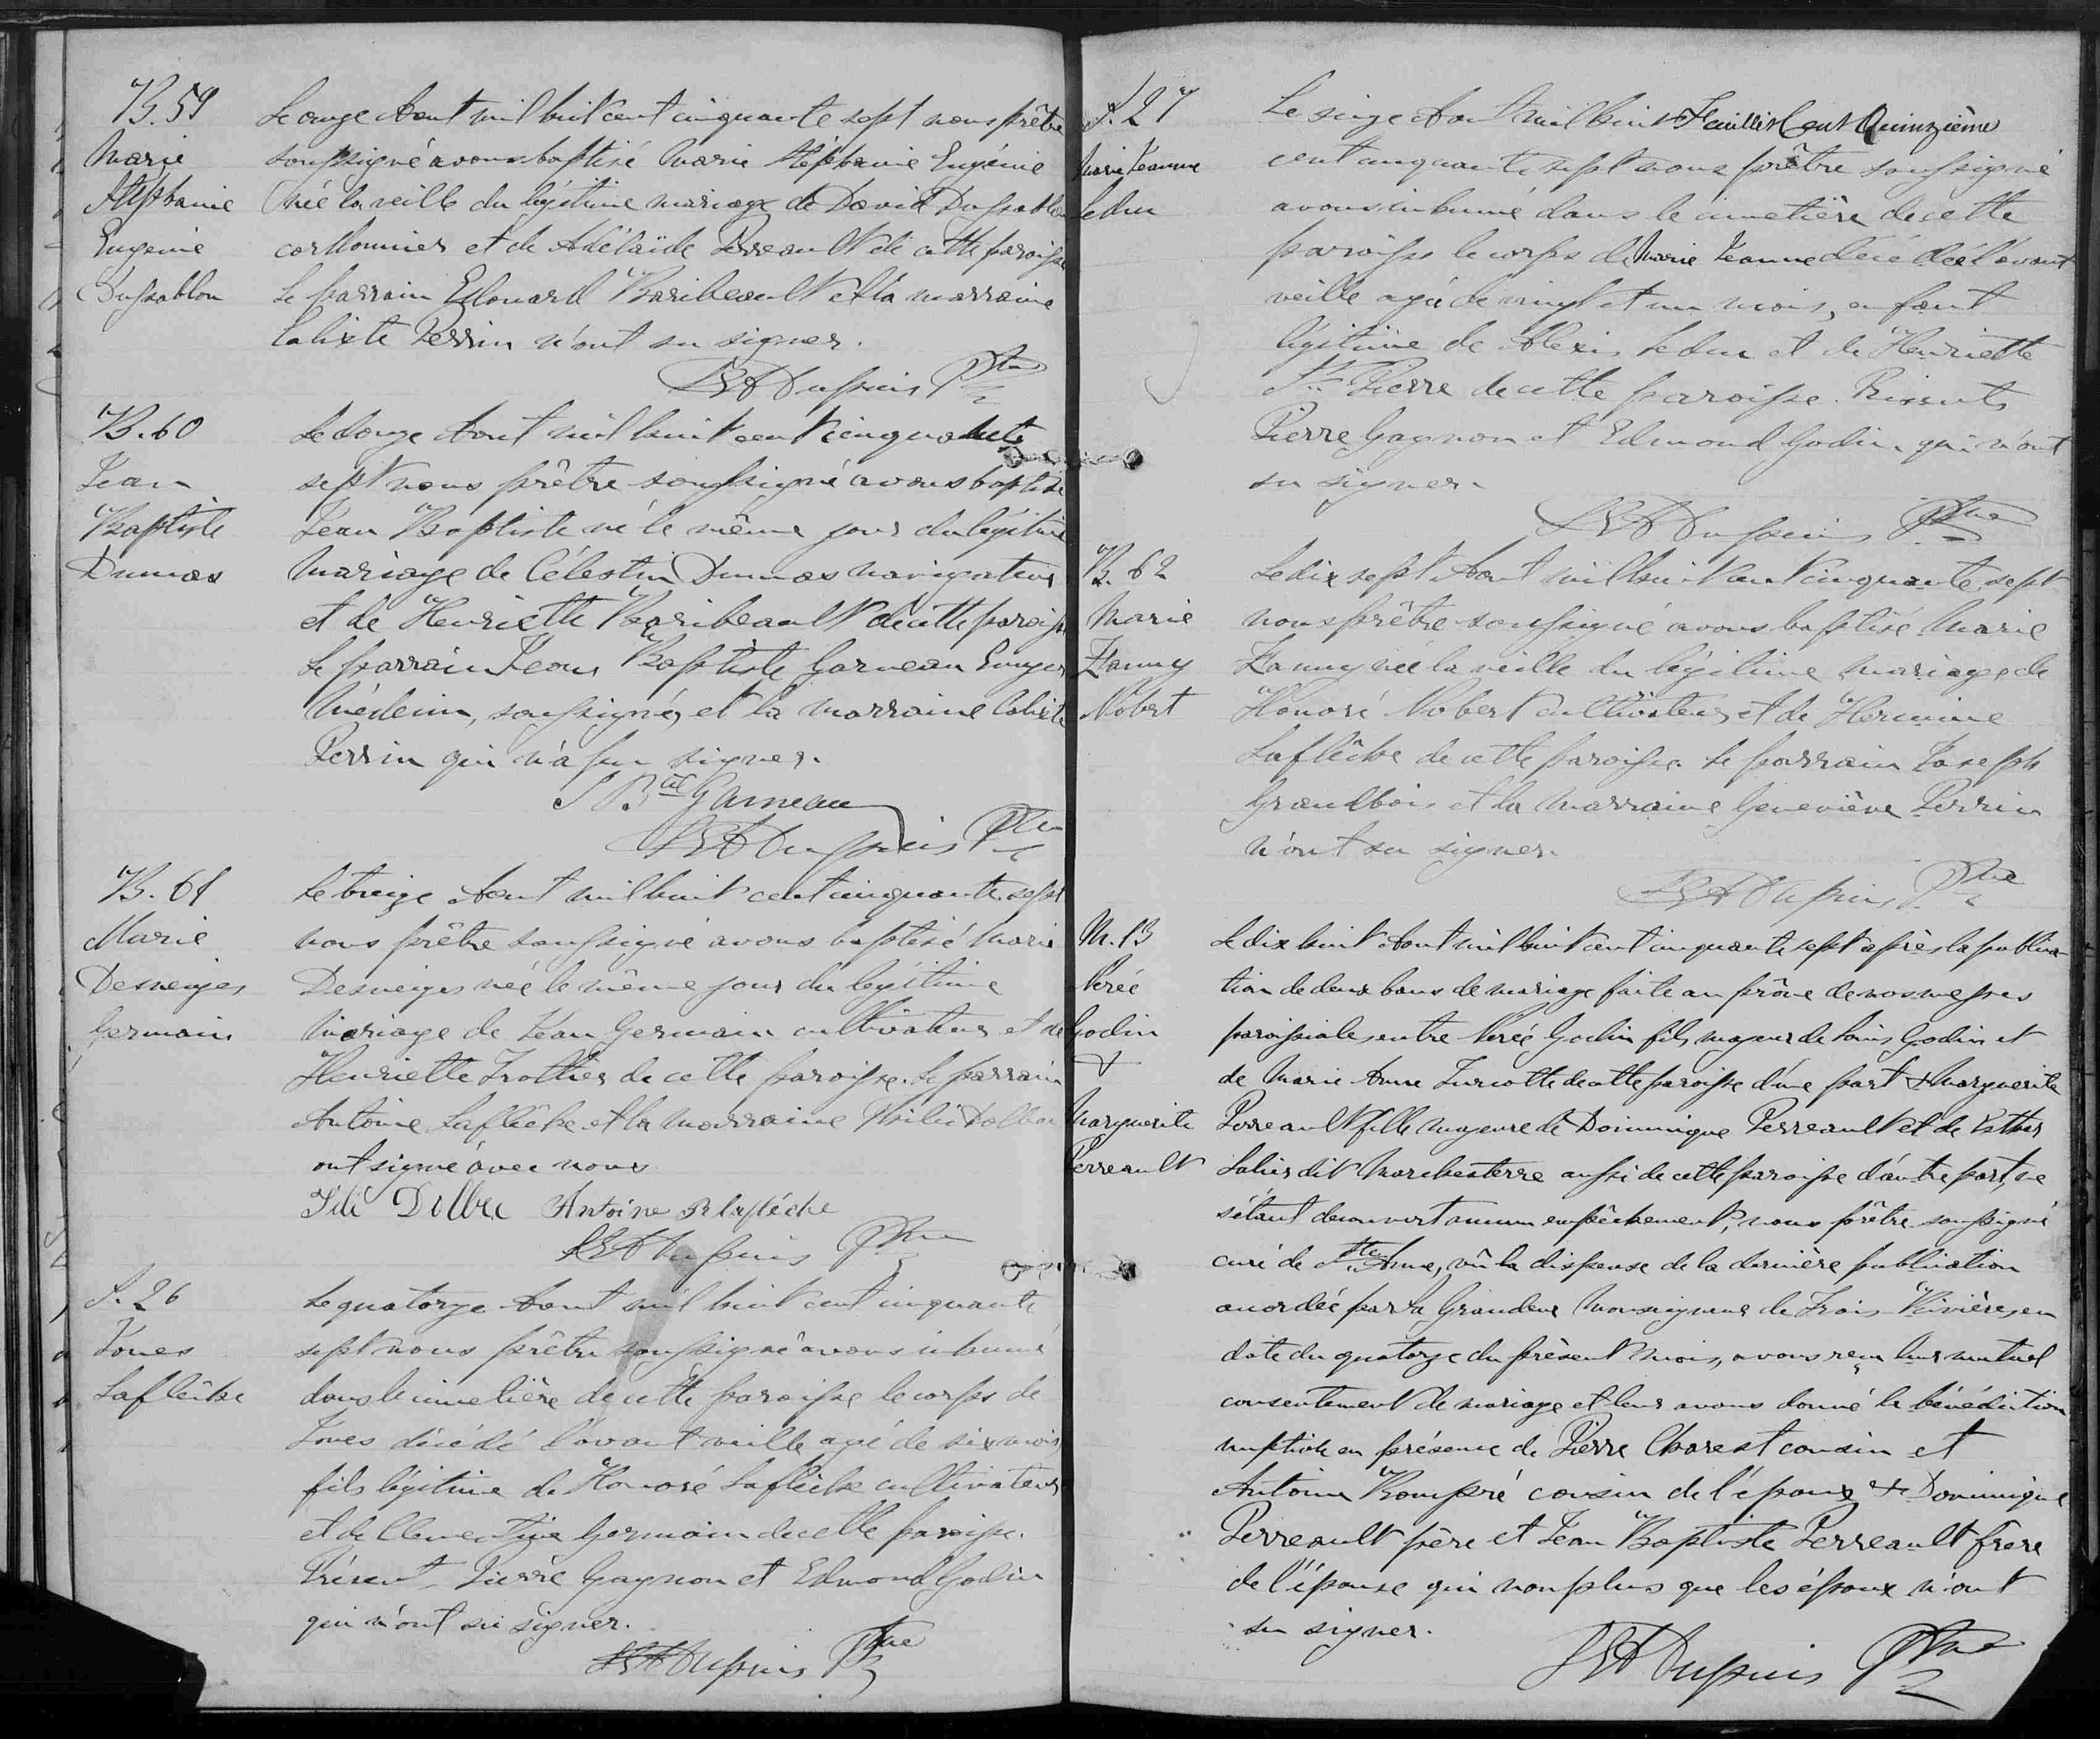 B. 59
Marie
Stéphanie
Eugénie
Dussablon
Le onze Aout mil huit cent cinquante sept nous prêtre
soussigné avons baptisé Marie Stéphanie Eugénie
née la veille du légitime mariage de David Dussablon
cordonnier et de Adélaïde Perreault de cette paroisse
Le parrain Edouard Baribeault et la marraine
Calixte Perrin n'ont su signer.
Dupuis Ptre
B. 60
Jean
Baptiste
Dumas
Le douze Aout mil huit cent cinquante
sept nous prêtre soussigné avons baptisé
Jean Baptiste né le même jour du légitime
mariage de Célestin Dumas navigateur
et de Henriette Baribeault de cette paroisse
Le parrain Jean Baptiste Garneau Ecuyer
Médecin, soussigné, et la marraine Calixte
Perrin qui n'a pu signer.
J Bte Garneau
Dupuis Ptre
B. 61
Marie
Desneiges
Germain
Le treize Aout mil huit cent cinquante sept
nous prêtre soussigné avons baptisé Marie
Desneiges née le même jour du légitime
mariage de Jean Germain cultivateur et de
Henriette Trottier de cette paroisse. Le parrain
Antoine Laflèche et la marraine Dolbec
ont signé avec nous
Dolbec Antoine R laflèche
Dupuis Ptre
S. 26
Jones
Laflèche
Le quatorze Aout mil huit cent cinquante
sept nous prêtre soussigné avons inhumé
dans le cimetière de cette paroisse le corps de
Jones décédé l'avant veille agé de six mois
fils légitime de Honoré Laflèche cultivateur
et de Clementine Germain de cette paroisse.
Présent Pierre Gagnon et Edmond Godin
qui n'ont su signer.
Dupuis Ptre
S. 27
Marie Jeanne
Leduc
Le seize Aout mil huit Feuillet Cent Quinzième
cent cinquante sept nous prêtre soussigné
avons inhumé dans le cimetière de cette
paroisse le corps de Marie Jeanne décédée l'avant
veille agée de vingt et un mois, enfant
légitime de Alexis Leduc et de Henriette
St Pierre de cette paroisse. Présents
Pierre Gagnon et Edmond Godin qui n'ont
su signer.
Dupuis Ptre
B. 62
Marie
Fanny
Nobert
Le dix sept Aout mil huit cent cinquante sept
nous prêtre soussigné avons baptisé Marie
Fanny née la veille du légitime mariage de
Honoré Nobert cultivateur et de Hermine
Laflèche de cette paroisse Le parrain Joseph
Grandbois et la marraine Geneviève Perrin
n'ont su signer.
Dupuis Ptre
M. 13
Nérée
Godin
&
Marguerite
Perreault
Le dix huit Aout mil huit cent cinquante sept après la publica-
tion de deux bans de mariage faite au prône de nos messes
paroissiales entre Nérée Godin fils majeur de Louis Godin et
de Marie Anne Turcotte de cette paroisse d'une part & Marguerite
Perreault fille majeure de Dominique Perreault et de Esther
dit Marcheterre aussi de cette paroisse d'autre part, ne
s'étant découvert aucun empêchement, nous prêtre soussigné
curé de Ste Anne, vû la dispense de la dernière publication
accordée par sa Grandeur Monseigneur de Trois-Rivières, en
date du quatorze du présent mois, avons reçu leur mutuel
consentement de mariage et leur avons donné la bénédiction
nuptiale en présence de Pierre Charest cousin et
Antoine Rompré cousin de l'époux & Dominique
Perreault père et Jean Baptiste Perreault frère
de l'épouse qui non plus que les époux n'ont
su signer.
Dupuis Ptre